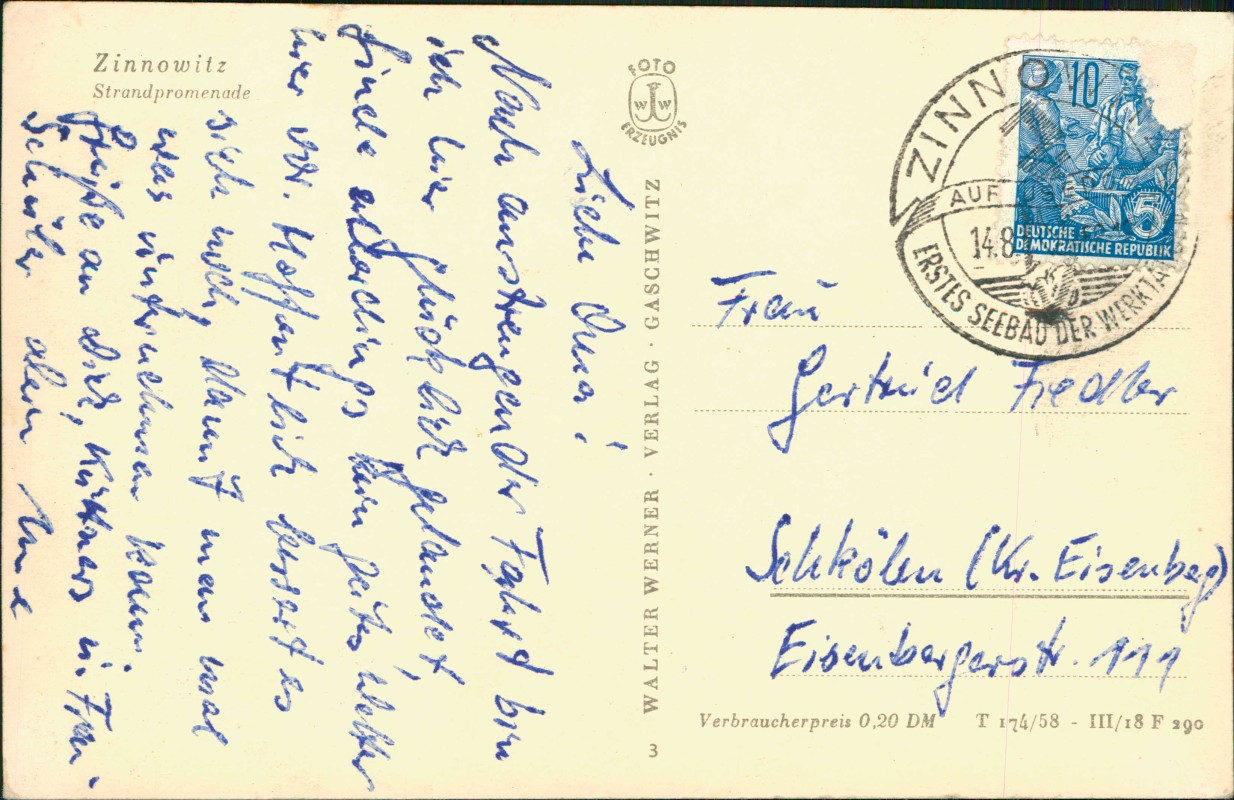 Zinnowitz
Strandpromenade
Liebe Oma!
Nach anstrengender Fahrt bin
ich hier glücklich gelandet,
finde allerdings kein gutes Wetter
hier vor. Hoffentlich bessert es
sich noch, damit man mal
was unternehmen kann.
Grüße an Dich, Kittners u. Frau
Schüler
FOTO
W W
ERZEUGNIS
WALTER WERNER · VERLAG · GASCHWITZ
3
ZINNOW
AUF
14.8.
ERSTES SEEBAD DER WERKTÄ
10
5
DEUTSCHE
DEMOKRATISCHE REPUBLIK
Frau
Gertrud Fiedler
Schkölen (Kr. Eisenberg)
Eisenbergerstr. 111
Verbraucherpreis 0,20 DM T 174/58 - III/18 F 290